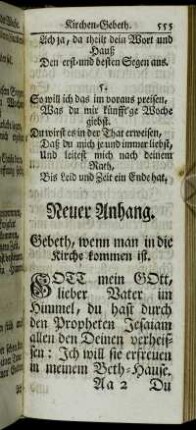 Kirchen-Gebeth. 555
Ach ja, da theil dein Wort und
Hauß
Den erst-und besten Segen aus.
5.
So will ich das im voraus preisen,
Was du mir künfft'ge Woche
giebst.
Du wirst es in der That erweisen,
Daß du mich je und immer liebst,
Und leitest mich nach deinem
Rath,
Bis Leid und Zeit ein Ende hat.
Neuer Anhang.
Gebeth, wenn man in die
Kirche kommen ist.
GOTT mein GOtt,
lieber Vater im
Himmel, du hast durch
den Propheten Jesaiam
allen den Deinen verheis-
sen: Ich will sie erfreuen
in meinem Beth-Hause.
Aa 2 Du